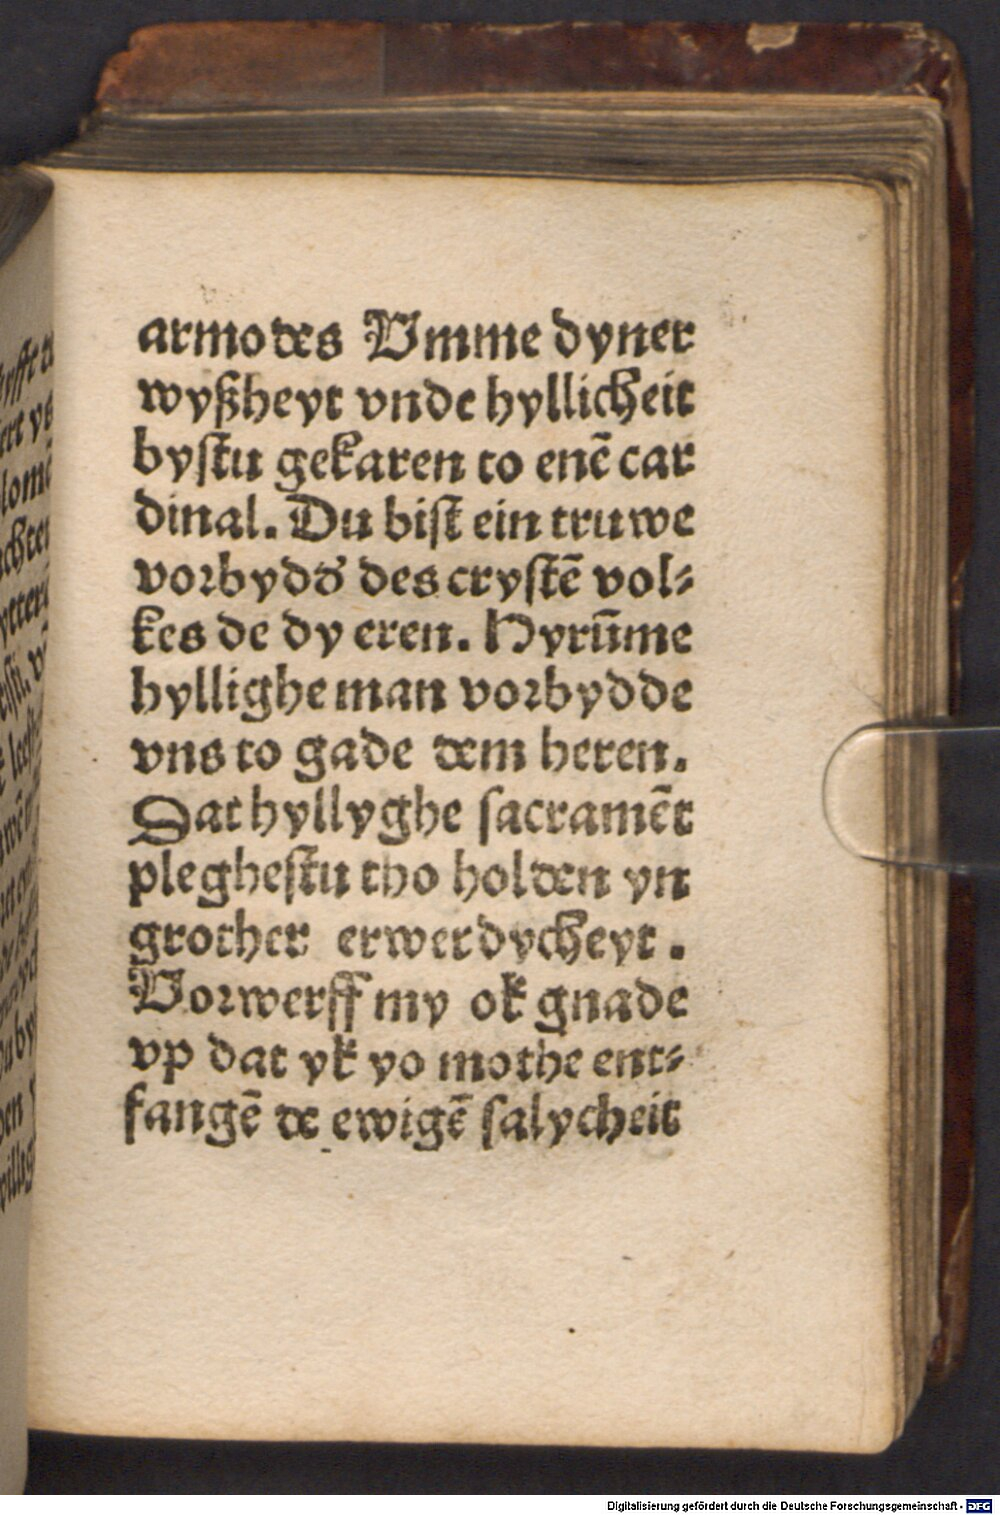 armodes Vmme dyner
wyßheyt vnde hyllicheit
bystu gekaren to enē car
dinal. Du bist ein truwe
vorbydď des crystē vol⸗
kes de dy eren. Hyrūme
hyllighe man vorbydde
vns to gade dem heren.
Dat hyllyghe sacramēt
pleghestu tho holden yn
grother erwerdycheyt.
Vorwerff my ok gnade
vp dat yk yo mothe ent⸗
fangē de ewigē salycheit
Digitalisierung gefördert durch die Deutsche Forschungsgemeinschaft - DFG